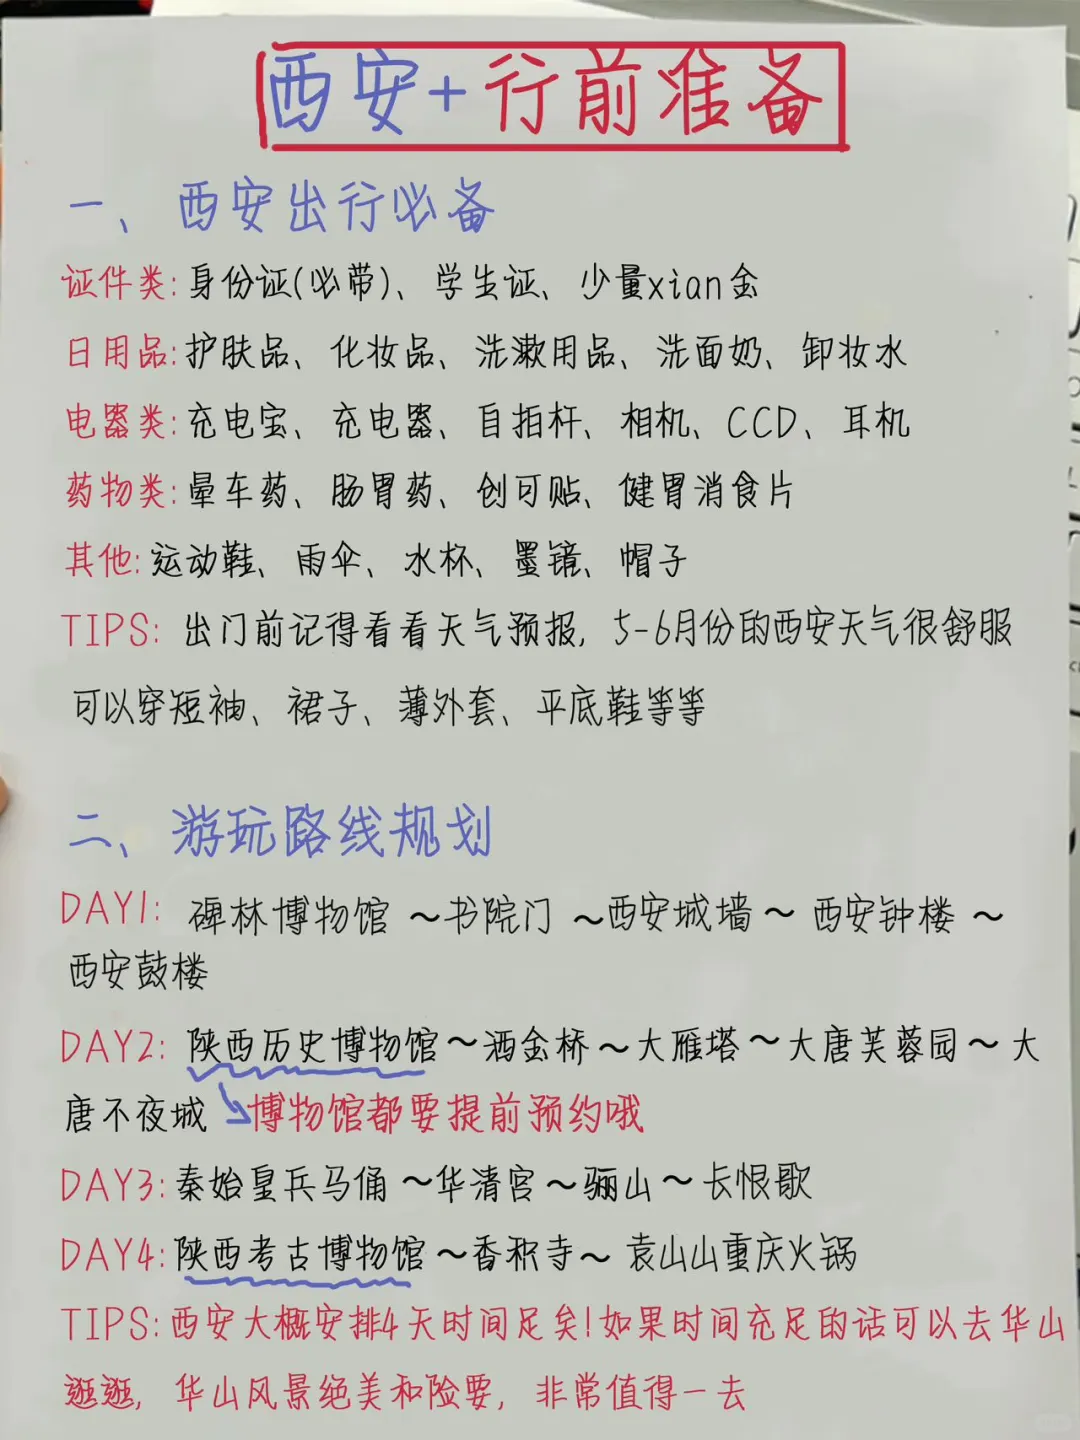 西安+行前准备
一、西安出行必备
证件类:身份证(必带)、学生证、少量xian金
日用品:护肤品、化妆品、洗漱用品、洗面奶、卸妆水
电器类:充电宝、充电器、自拍杆、相机、CCD、耳机
药物类:晕车药、肠胃药、创可贴、健胃消食片
其他:运动鞋、雨伞、水杯、墨镜、帽子
TIPS: 出门前记得看看天气预报, 5-6月份的西安天气很舒服
可以穿短袖、裙子、薄外套、平底鞋等等
二、游玩路线规划
DAY1: 碑林博物馆 ~书院门 ~西安城墙~ 西安钟楼 ~
西安鼓楼
DAY2: 陕西历史博物馆~洒金桥~大雁塔~大唐芙蓉园~大
唐不夜城 博物馆都要提前预约哦
DAY3:秦始皇兵马俑 ~华清宫~骊山~长恨歌
DAY4:陕西考古博物馆 ~香积寺~ 袁山山重庆火锅
TIPS:西安大概安排4天时间足矣!如果时间充足的话可以去华山
逛逛, 华山风景绝美和险要, 非常值得一去